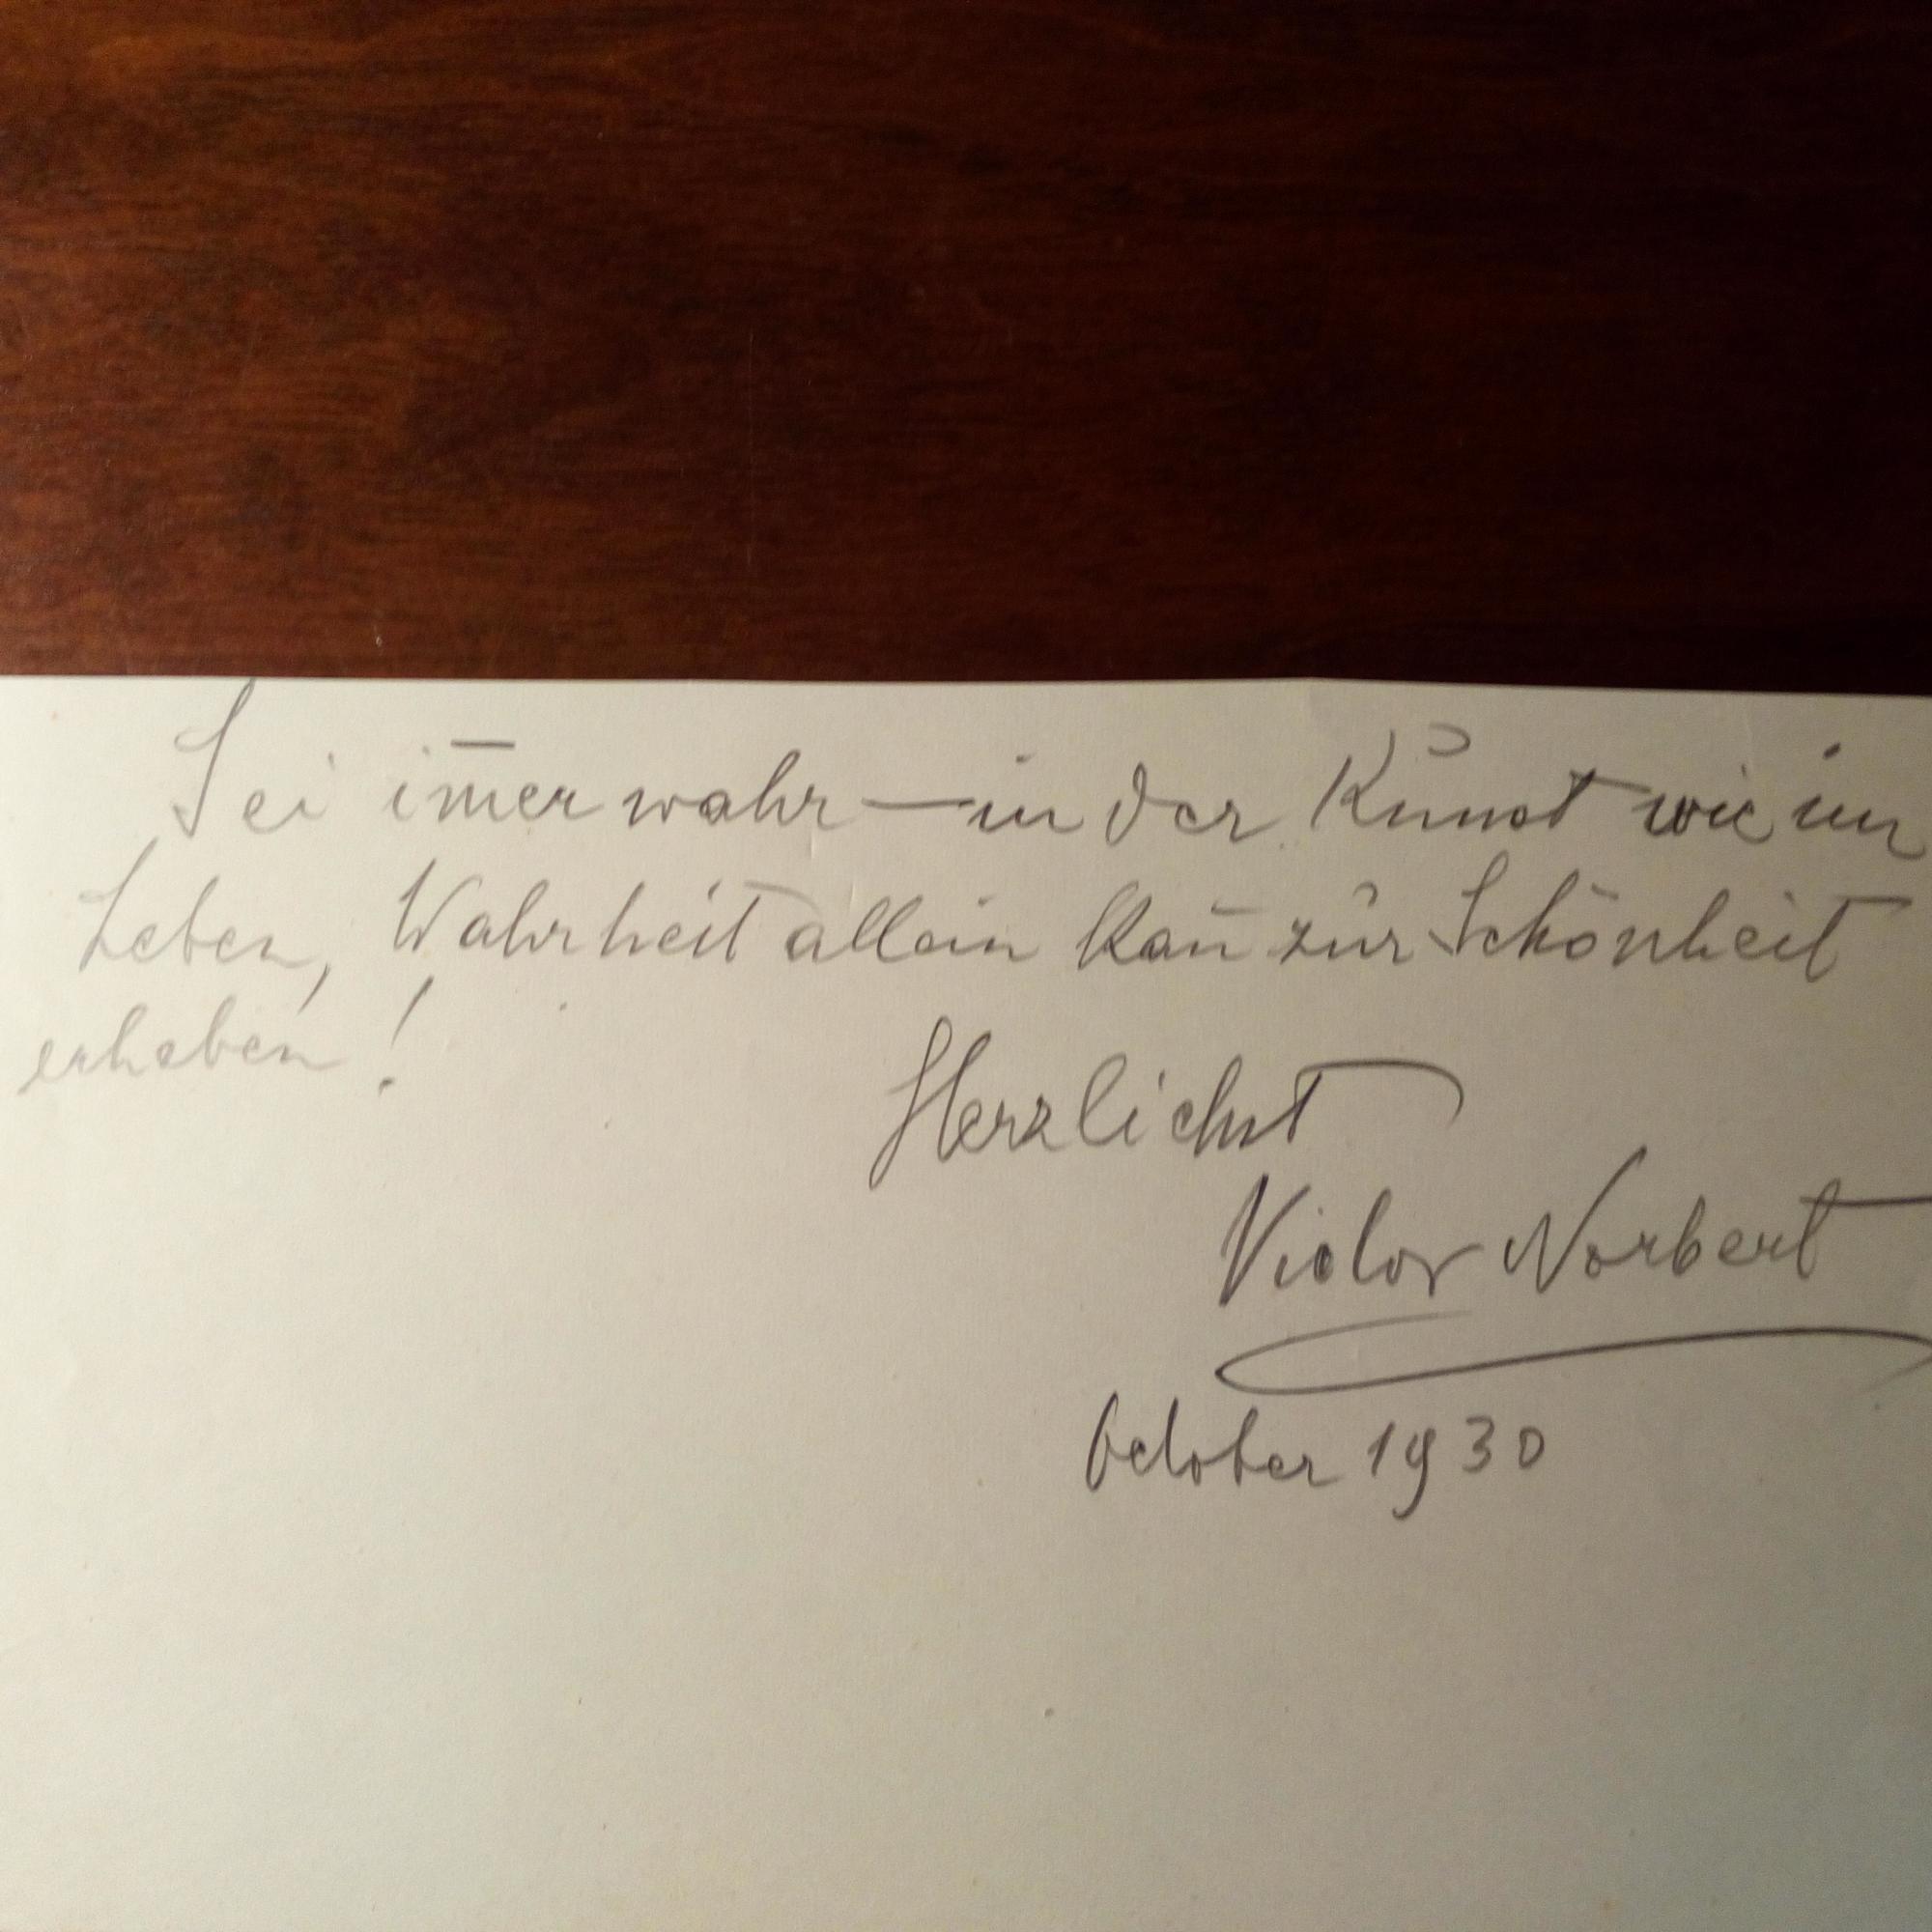 Sei im̅er wahr — in der Kunst wie im
Leben, Wahrheit allein kan̅ zur Schönheit
erheben!
Herzlichst
Victor Norbert
October 1930